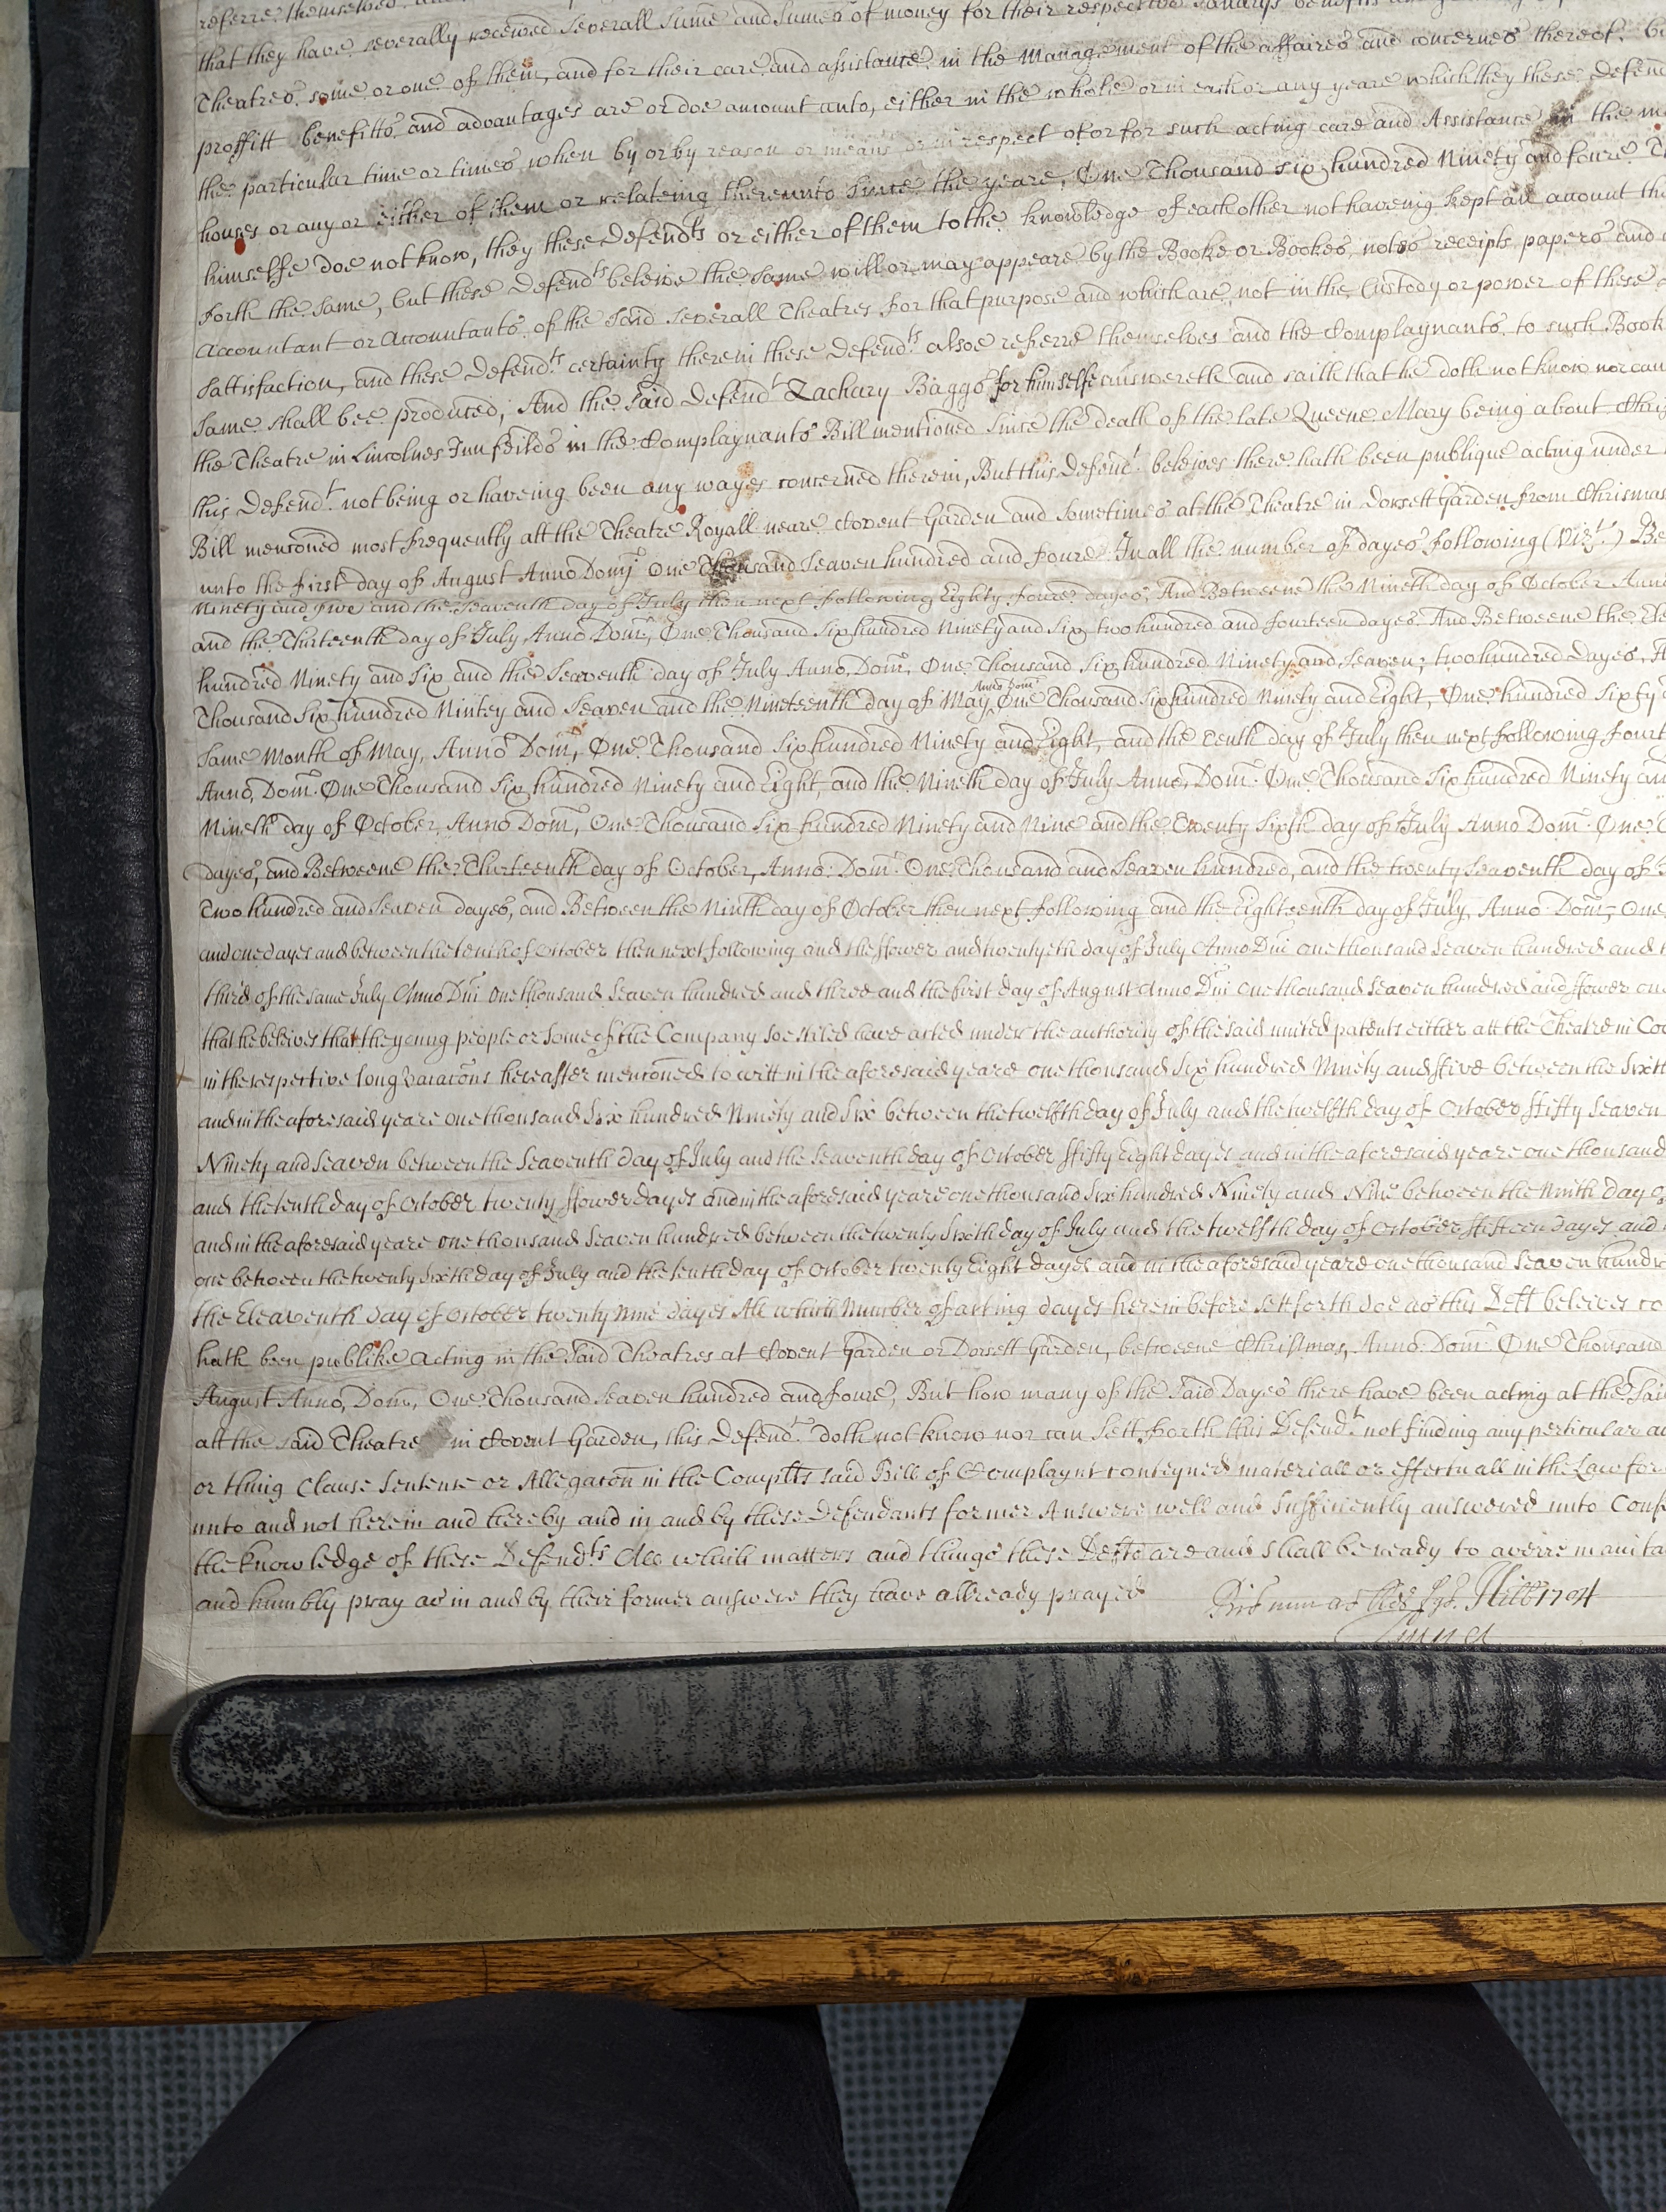 referre themselves
that they have severally received severall sume and sumes of money for their respective
Theatres some or one of them, and for their care and assistance in the Management of the affaires and concernes thereof.
proffitt benefitts and advantages are or doe amount unto, either in the whole or in each or any yeare which they these Defend
the particular time or times when by or by reason or means or in respect of or for such acting care and Assistance in the
houses or any or either of them or relateing thereunto since the yeare, One Thousand six hundred Ninety and foure
himselfe doe not know, they these Defendts or either of them to the knowledge of each other not haveing kept an account
forth the same, but these Defendts beleive the same will or may appeare by the Booke or Bookes, notes receipts papers and
Accountant or Accountants of the said severall Theatres for that purpose and which are not in the Custody or power of these
sattisfaction, and these Defendts certainty therein these Defendts alsoe referre themselves and the Complaynants to such Book
same shall bee produced; And the said Defendt Zachary Baggs for himselfe answereth and saith that he doth not know nor can
the Theatre in Lincolnes Inn feilds in the Complaynants Bill mentioned since the death of the late Queene Mary being about
this Defendt not being or haveing been any wayes concerned therein, But this Defendt beleives there hath been publique acting under
Bill menconed most frequently att the Theatre Royall neare Covent Garden and sometimes at the Theatre in Dorsett Garden from Chrismas
unto the first day of August Anno Domj One Thousand seaven hundred and foure In all the number of dayes following (Vizt) Be
Ninety and five and the seaventh day of July then next following Eighty foure dayes, And Betweene the Nineth day of October Anno
and the Thirteenth day of July Anno Dom, One Thousand six hundred Ninety and six two hundred and fourteen dayes And Betweene the
hundred Ninety and six and the Seaventh day of July Anno Dom, One Thousand six hundred Ninety and seaven, two hundred dayes,
Thousand six hundred Nintey and seaven and the Nineteenth day of May Anno Dom One Thousand six hundred Ninety and Eight, One hundred sixty
same Month of May, Anno Dom, One Thousand six hundred Ninety and Eight, and the Tenth day of July then next following
Anno, Dom One Thousand six hundred Ninety and Eight, and the Nineth day of July Anno, Dom One Thousand six hundred Ninety
Nineth day of October, Anno Dom, One Thousand six hundred Ninety and Nine and the Twenty sixth day of July Anno Dom One
dayes, and Betweene the Thirteenth day of October, Anno Dom One Thousand and Seaven hundred, and the twenty seaventh day of
Two hundred and seaven dayes, and Between the Ninth day of October then next following and the Eighteenth day of July, Anno Dom, One
and one dayes and between the tenth of October then next following and the ffower and twentyeth day of July Anno Dni one thousand seaven hundred and
third of the same July Anno Dni one thousand seaven hundred and three and the first day of August Anno Dni one thousand seaven hundred and ffower
that he beleives that the young people or some of the Company soe stiled have acted under the authority of the said united patents either att the Theatre in
in the respective long vacacons hereafter menconed to witt in the aforesaid yeare one thousand six hundred Ninety and ffive between the
and in the aforesaid yeare one thousand six hundred Ninety and six between the twelfth day of July and the twelfth day of October ffifty seaven
Ninety and seaven between the seaventh day of July and the seaventh day of October ffifty Eight dayes and in the aforesaid yeare one thousand
and the tenth day of October twenty ffower dayes and in the aforesaid yeare one thousand six hundred Ninety and Nine between the Ninth day
and in the aforesaid yeare one thousand seaven hundred between the twenty sixth day of July and the twelfth day of October ffifteen dayes and
one between the twenty sixth day of July and the tenth day of October twenty Eight dayes and in the aforesaid yeare one thousand seaven
the Eleaventh day of October twenty nine dayes All which Number of acting dayes herein before sett forth doe as this Deft beleives
hath been publike acting in the said Theatres at Covent Garden or Dorsett Garden, betweene Christmas, Anno Dom One Thousand
August Anno, Dom, One Thousand seaven hundred and foure, But how many of the said Dayes there have been acting at the
att the said Theatre in Covent Garden, this Defendt doth not know nor can sett forth this Defendt not finding any perticular
or thing Clause Sentense or Allegacon in the Complts said Bill of Complaynt conteyned materiall or effectuall in the Law for
unto and not herein and hereby and in and by these Defendants former Answere well and sufficiently answered unto
the knowledge of these Defendts All which matters and things these Defts are and shall be ready to averre
and humbly pray as in and by their former answere they have allready prayed